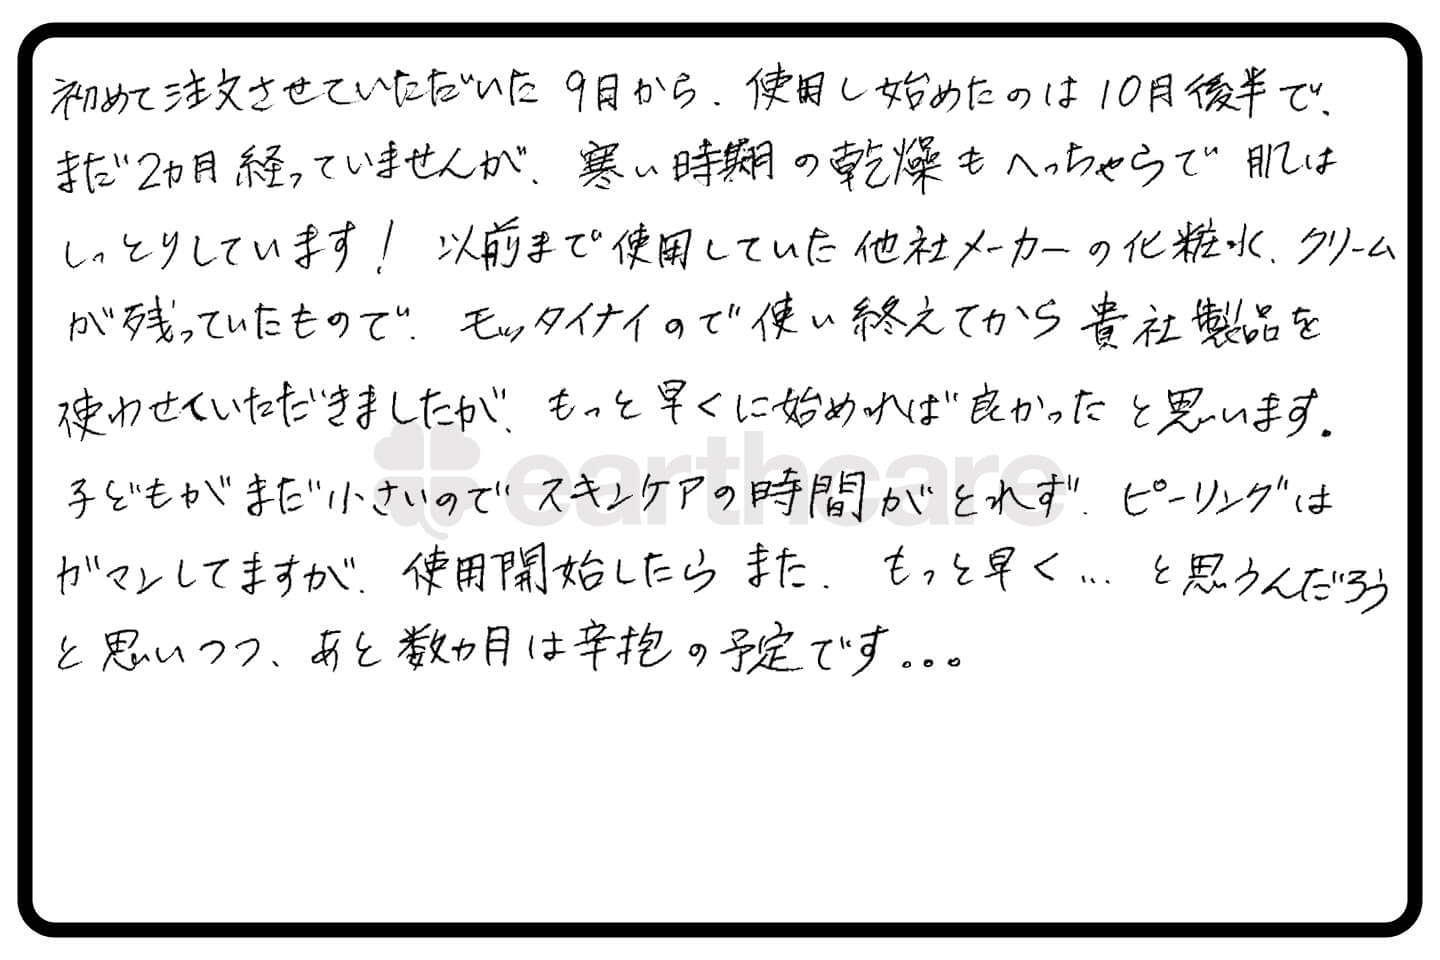 初めて注文させていただいた 9月から、使用し始めたのは10月後半で、
まだ2カ月経っていませんが、寒い時期の乾燥もへっちゃらで 肌は
しっとりしています! 以前まで使用していた他社メーカーの化粧水、クリーム
が残っていたもので、モッタイナイので使い終えてから貴社製品を
使わせていただきましたが、もっと早くに始めれば良かったと思います。
earthcare
子どもがまだ小さいのでスキンケアの時間がとれず、ピーリングは
ガマンしてますが、使用開始したらまた、もっと早く…と思うんだろう
と思いつつ、あと数ヵ月は辛抱の予定です。。。